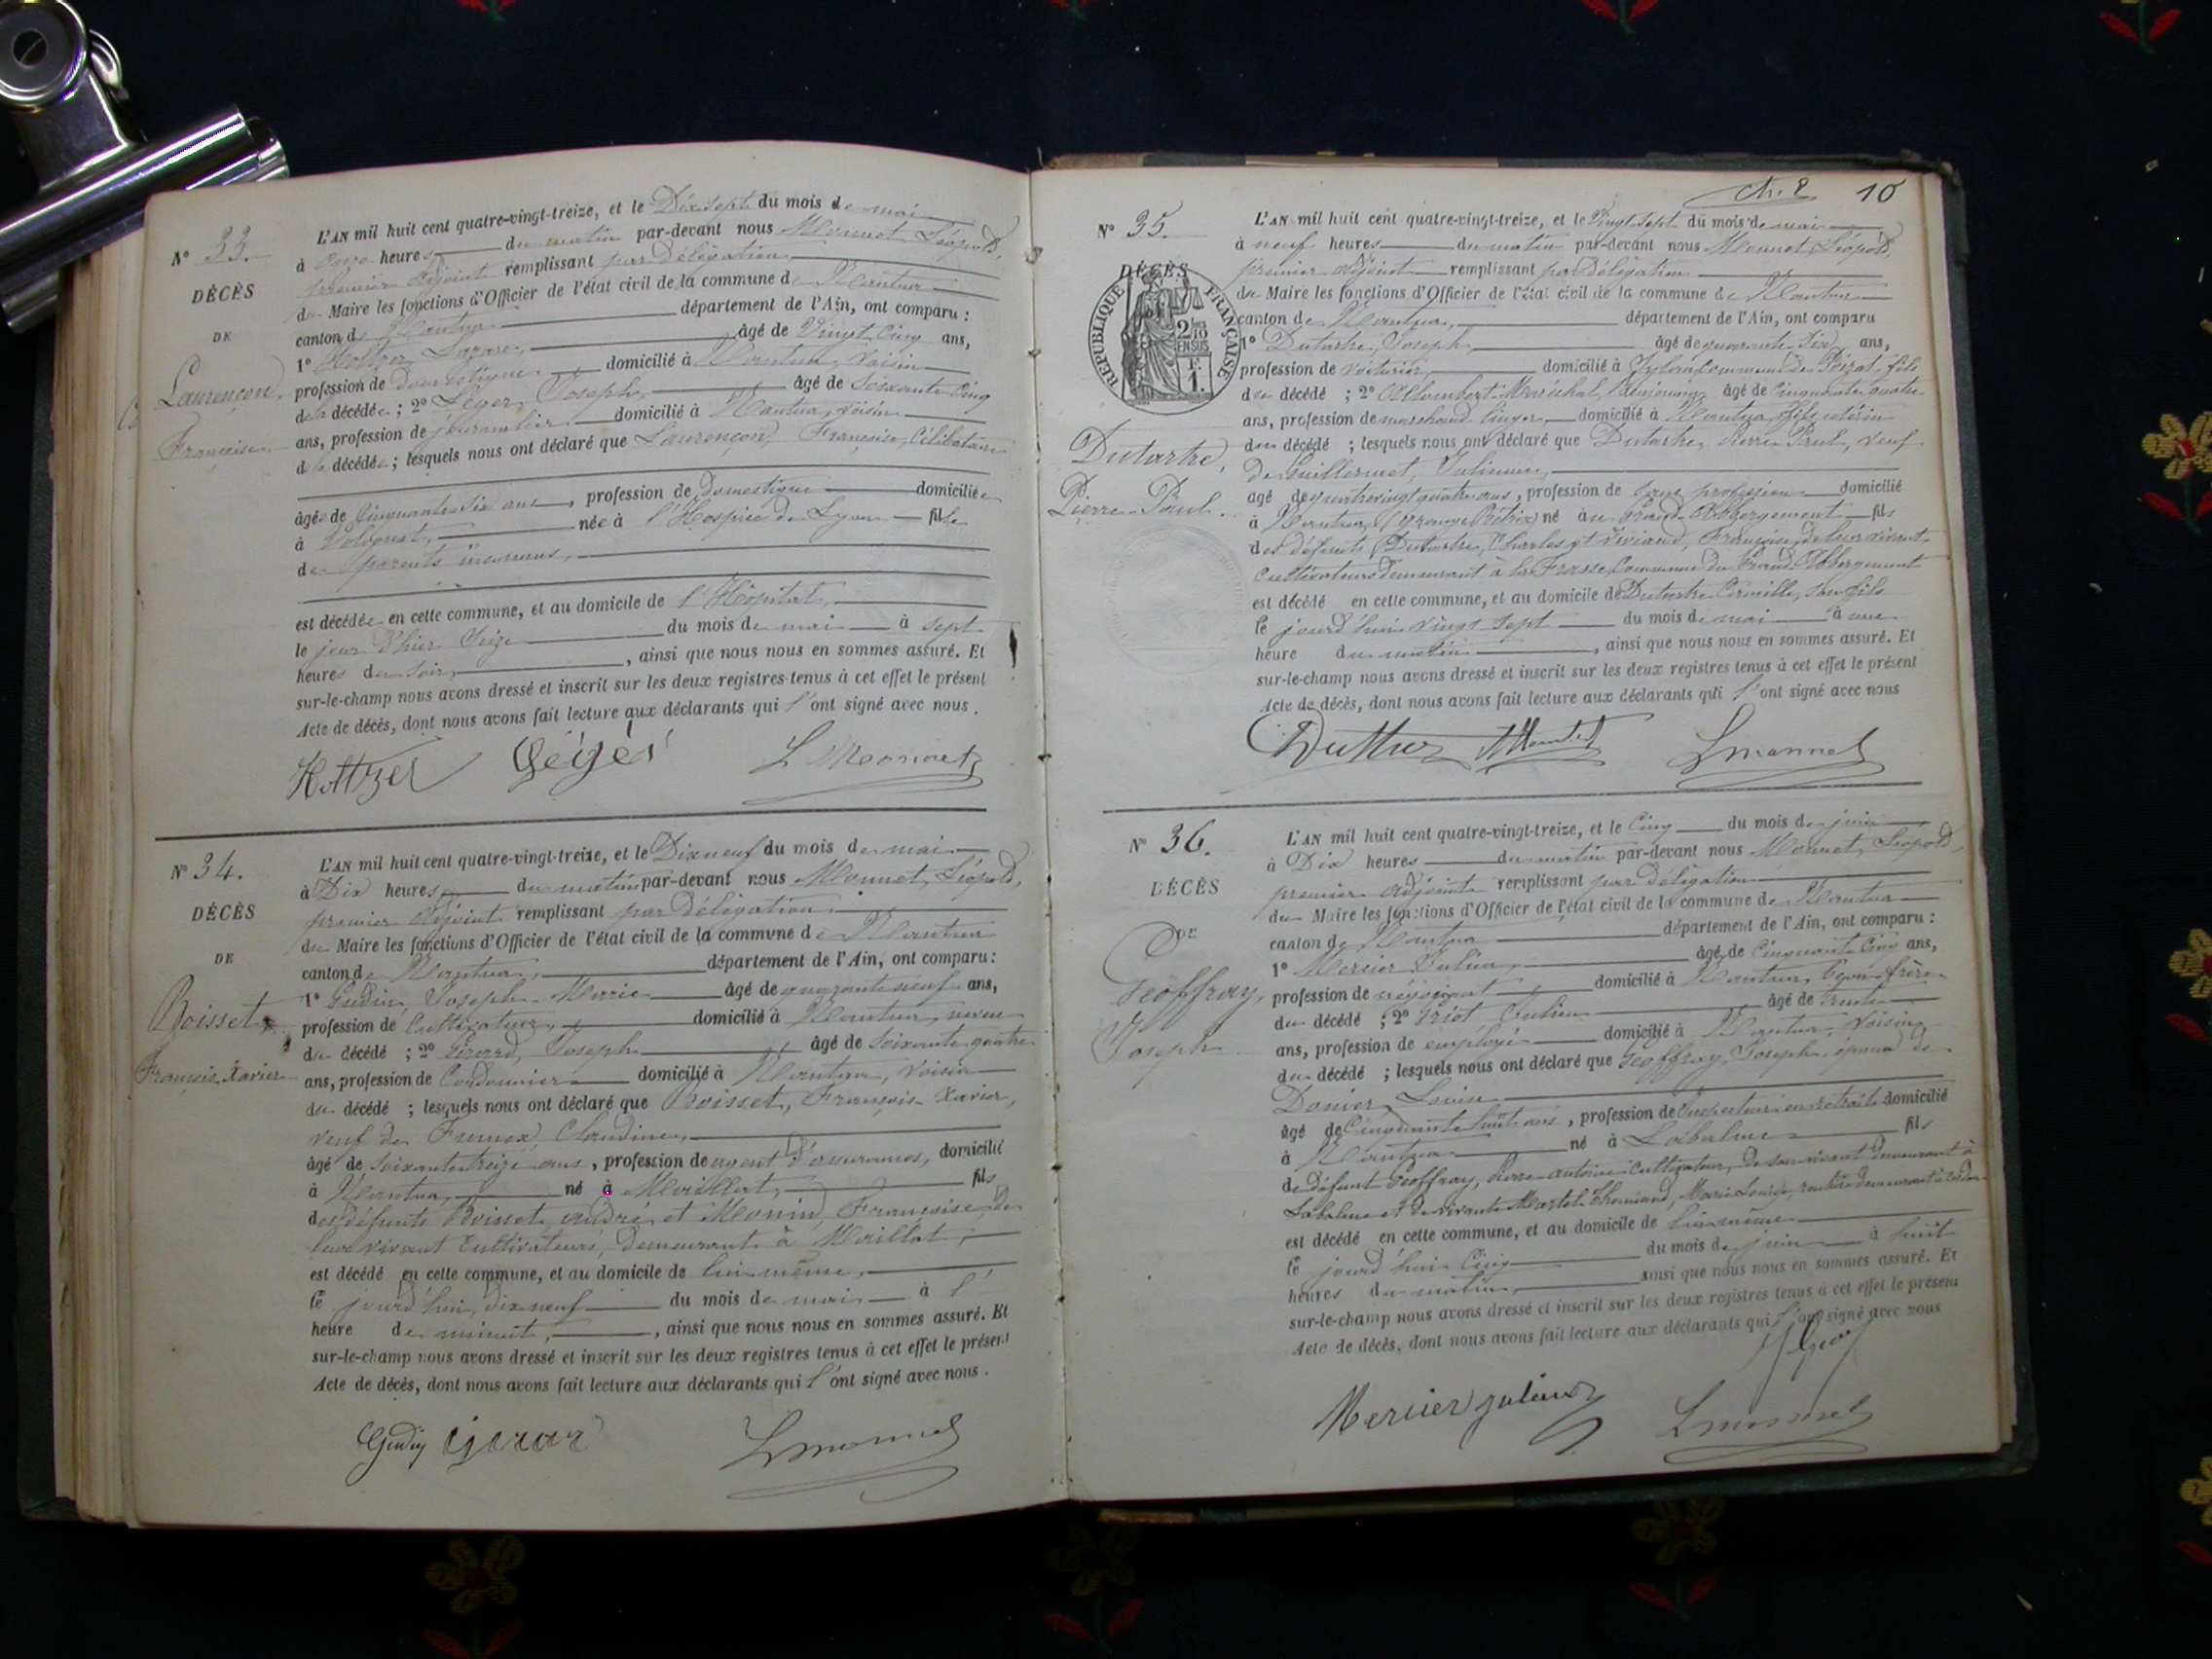 N° 33.
DÉCÈS
DE
Laurençon,
Françoise
L'AN mil huit cent quatre-vingt-treize, et le Dix sept du mois de mai
à onze heures du matin par-devant nous Monnet Léopold,
premier adjoint remplissant par Délégation
du Maire les fonctions d'Officier de l'état civil de la commune de Nantua
canton de Nantua département de l'Ain, ont comparu :
1° Lazare, âgé de Vingt Cinq ans,
profession de Domestique domicilié à Nantua, voisin
de la décédée ; 2° Léger, Joseph, âgé de soixante Cinq
ans, profession de journalier domicilié à Nantua, voisin
de la décédée ; lesquels nous ont déclaré que Laurençon, Françoise, Célibataire
âgée de Cinquante six ans, profession de domestique domiciliée
à née à l'Hospice de Lyon fille
de parents inconnus,
est décédée en cette commune, et au domicile de l'Hôpital,
le jour d'hier Seize du mois de mai à sept
heures du soir, ainsi que nous nous en sommes assuré. Et
sur-le-champ nous avons dressé et inscrit sur les deux registres tenus à cet effet le présent
Acte de décès, dont nous avons fait lecture aux déclarants qui l'ont signé avec nous.
L Monnet
N° 34.
DÉCÈS
DE
Boisset
François Xavier
L'AN mil huit cent quatre-vingt-treize, et le Dix neuf du mois de mai
à Dix heures du matin par-devant nous Monnet, Léopold,
premier adjoint remplissant par Délégation
du Maire les fonctions d'Officier de l'état civil de la commune de Nantua
canton de Nantua, département de l'Ain, ont comparu :
1° Gudin, Joseph Marie âgé de quarante neuf ans,
profession de Cultivateur, domicilié à Nantua, neveu
du décédé ; 2° Girard, Joseph âgé de soixante quatre
ans, profession de Cordonnier domicilié à Nantua, voisin
du décédé ; lesquels nous ont déclaré que Boisset, François Xavier,
veuf de Claudine,
âgé de soixante treize ans, profession de agent d'assurances, domicilié
à Nantua, né à Maillat, fils
des défunts Boisset, andré et Monin, Françoise, de
leur vivant Cultivateurs, Demeurant à Maillat,
est décédé en cette commune, et au domicile de lui même,
le jourd'hui, dix neuf du mois de mai à l'
heure de minuit, ainsi que nous nous en sommes assuré. Et
sur-le-champ nous avons dressé et inscrit sur les deux registres tenus à cet effet le présent
Acte de décès, dont nous avons fait lecture aux déclarants qui l'ont signé avec nous.
Gudin Girar L Monnet
10
N° 35.
DÉCÈS
RÉPUBLIQUE FRANÇAISE
2/10 EN SUS
F. 1.
Dutartre,
Pierre Paul.
L'AN mil huit cent quatre-vingt-treize, et le Vingt Sept du mois de mai
à neuf heures du matin par-devant nous Monnet, Léopold,
premier adjoint remplissant par Délégation
du Maire les fonctions d'Officier de l'état civil de la commune de Nantua
canton de Nantua, département de l'Ain, ont comparu
1° Dutartre, Joseph âgé de quarante Six ans,
profession de Voiturier, domicilié à commune de Poizat, fils
du décédé ; 2° Allombert-Maréchal, âgé de Cinquante quatre
ans, profession de marchand linger, domicilié à Nantua,
du décédé ; lesquels nous ont déclaré que Dutartre, Pierre Paul, veuf
de Guillermet, Julienne,
agé de quatre vingt quatre ans, profession de sans profession domicilié
à Nantua, né au Grand Abbergement fils
des défunts Dutartre, Charles et Viviand, Françoise, de leur vivant
Cultivateurs demeurant à la Frasse, Commune du Grand Abbergement
est décédé en cette commune, et au domicile de Dutartre Camille, son fils
le jourd'hui vingt sept du mois de mai à une
heure du matin, ainsi que nous nous en sommes assuré. Et
sur-le-champ nous avons dressé et inscrit sur les deux registres tenus à cet effet le présent
Acte de décès, dont nous avons fait lecture aux déclarants qui l'ont signé avec nous
L Monnet
N° 36.
DÉCÈS
DE
Geoffray,
Joseph
L'AN mil huit cent quatre-vingt-treize, et le Cinq du mois de juin
à Dix heures du matin par-devant nous Monnet, Léopold,
premier adjoint remplissant par délégation
du Maire les fonctions d'Officier de l'état civil de la commune de Nantua
canton de Nantua département de l'Ain, ont comparu :
1° Mercier, Julien, âgé de Cinquante Cinq ans,
profession de négociant domicilié à Nantua, beau-frère
du décédé ; 2° Griot Julien âgé de trente
ans, profession de employé domicilié à Nantua, voisin
du décédé ; lesquels nous ont déclaré que Geoffray, Joseph, époux de
Donier, Louise,
âgé de Cinquante huit ans, profession de Inspecteur en retraite domicilié
à Nantua né à Labalme fils
de défunt Geoffray, Pierre antoine Cultivateur, de son vivant demeurant à
Labalme et de vivante Martel Marie Louise, rentière demeurant à
est décédé en cette commune, et au domicile de lui même
le jourd'hui Cinq du mois de juin à huit
heures du matin, ainsi que nous nous en sommes assuré. Et
sur-le-champ nous avons dressé et inscrit sur les deux registres tenus à cet effet le présent
Acte de décès, dont nous avons fait lecture aux déclarants qui l'ont signé avec nous
Mercier Julien L Monnet